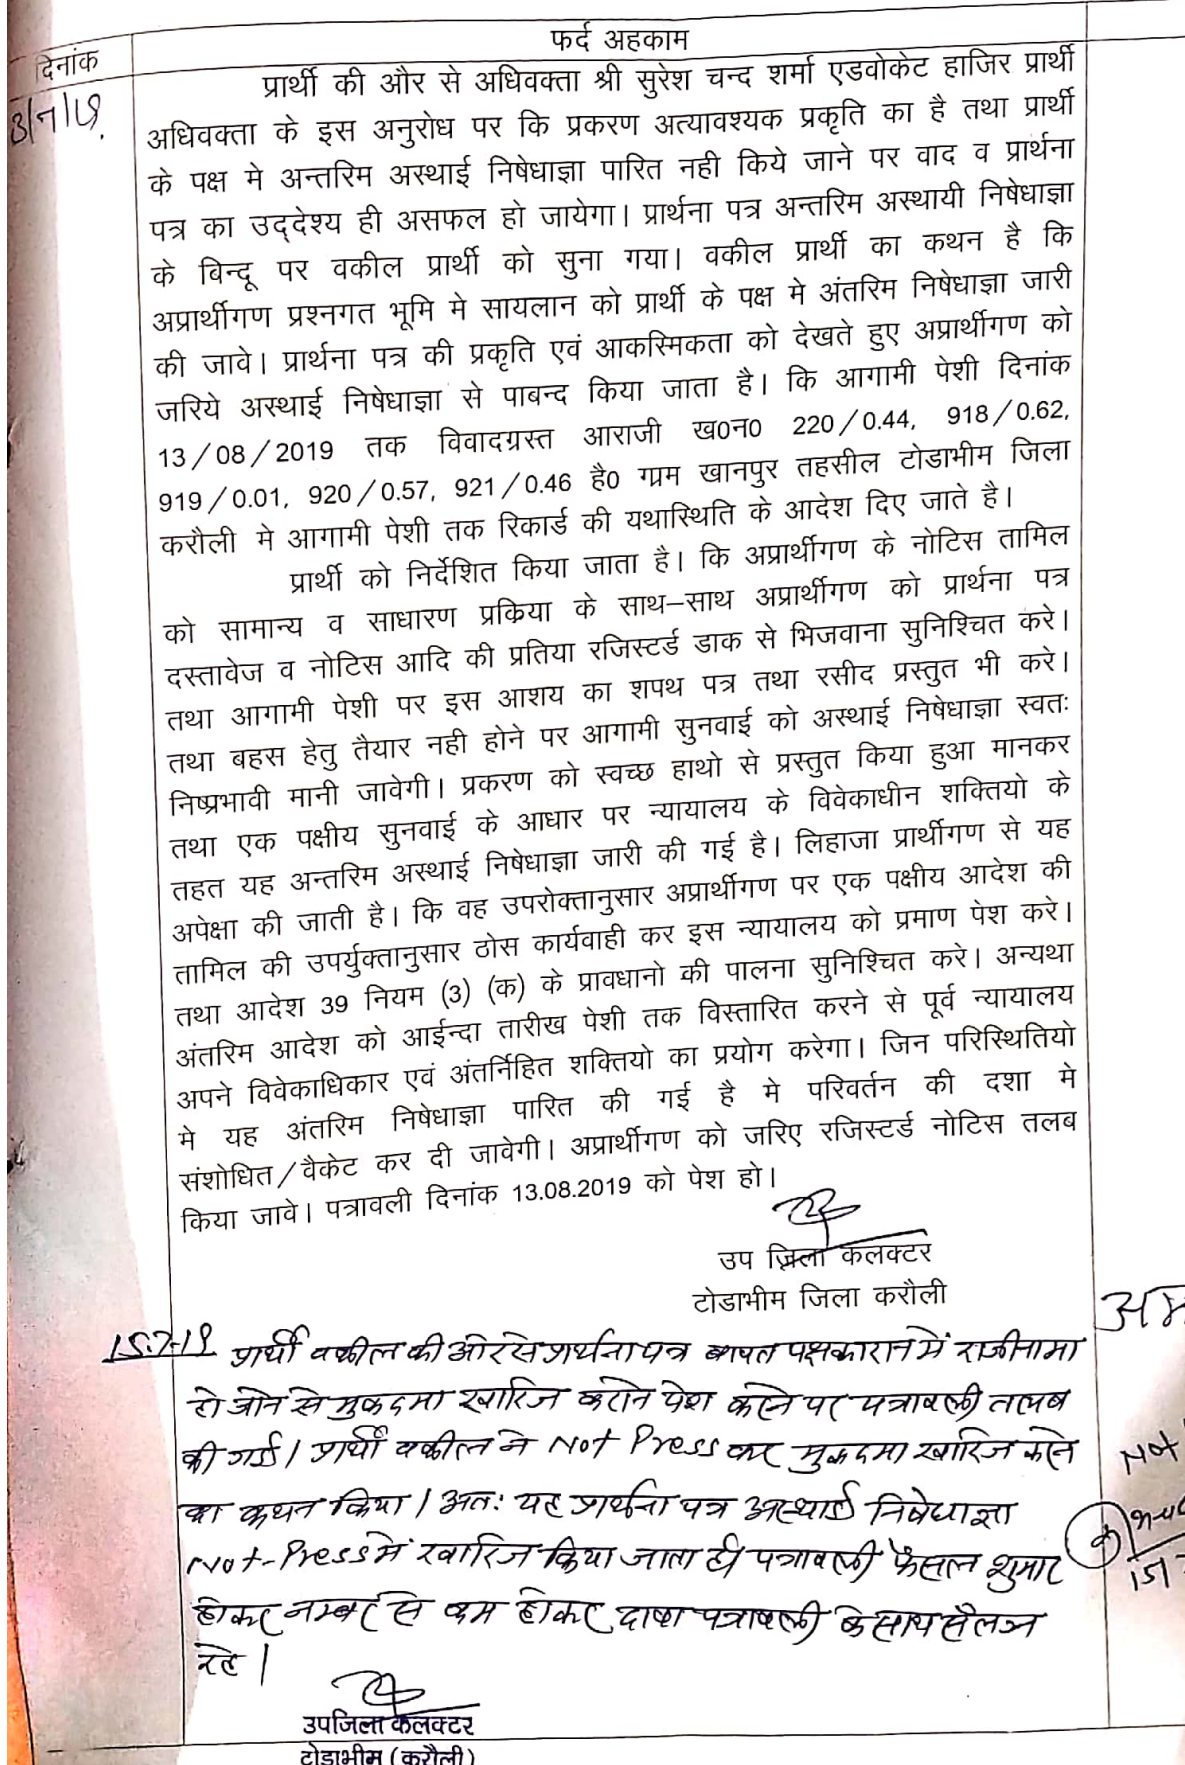 फर्द अहकाम
दिनांक
प्रार्थी की और से अधिवक्ता श्री सुरेश चन्द शर्मा एडवोकेट हाजिर प्रार्थी
अधिवक्ता के इस अनुरोध पर कि प्रकरण अत्यावश्यक प्रकृति का है तथा प्रार्थी
के पक्ष मे अन्तरिम अस्थाई निषेधाज्ञा पारित नही किये जाने पर वाद व प्रार्थना
पत्र का उद्देश्य ही असफल हो जायेगा। प्रार्थना पत्र अन्तरिम अस्थायी निषेधाज्ञा
के बिन्दू पर वकील प्रार्थी को सुना गया। वकील प्रार्थी का कथन है कि
अप्रार्थीगण प्रश्नगत भूमि मे सायलान को प्रार्थी के पक्ष मे अंतरिम निषेधाज्ञा जारी
की जावे। प्रार्थना पत्र की प्रकृति एवं आकस्मिकता को देखते हुए अप्रार्थीगण को
जरिये अस्थाई निषेधाज्ञा से पाबन्द किया जाता है। कि आगामी पेशी दिनांक
13/08/2019 तक विवादग्रस्त आराजी ख0न0 220/0.44, 918/0.62,
919/0.01, 920/0.57, 921/0.46 है0 ग्राम खानपुर तहसील टोडाभीम जिला
करौली मे आगामी पेशी तक रिकार्ड की यथास्थिति के आदेश दिए जाते है।
प्रार्थी को निर्देशित किया जाता है। कि अप्रार्थीगण के नोटिस तामिल
को सामान्य व साधारण प्रक्रिया के साथ–साथ अप्रार्थीगण को प्रार्थना पत्र
दस्तावेज व नोटिस आदि की प्रतिया रजिस्टर्ड डाक से भिजवाना सुनिश्चित करे।
तथा आगामी पेशी पर इस आशय का शपथ पत्र तथा रसीद प्रस्तुत भी करे।
तथा बहस हेतु तैयार नही होने पर आगामी सुनवाई को अस्थाई निषेधाज्ञा स्वतः
निष्प्रभावी मानी जावेगी। प्रकरण को स्वच्छ हाथो से प्रस्तुत किया हुआ मानकर
तथा एक पक्षीय सुनवाई के आधार पर न्यायालय के विवेकाधीन शक्तियो के
तहत यह अन्तरिम अस्थाई निषेधाज्ञा जारी की गई है। लिहाजा प्रार्थीगण से यह
अपेक्षा की जाती है। कि वह उपरोक्तानुसार अप्रार्थीगण पर एक पक्षीय आदेश की
तामिल की उपर्युक्तानुसार ठोस कार्यवाही कर इस न्यायालय को प्रमाण पेश करे।
तथा आदेश 39 नियम (3) (क) के प्रावधानो की पालना सुनिश्चित करे। अन्यथा
अंतरिम आदेश को आईन्दा तारीख पेशी तक विस्तारित करने से पूर्व न्यायालय
अपने विवेकाधिकार एवं अंतर्निहित शक्तियो का प्रयोग करेगा। जिन परिस्थितियो
मे यह अंतरिम निषेधाज्ञा पारित की गई है मे परिवर्तन की दशा मे
संशोधित/वैकेट कर दी जावेगी। अप्रार्थीगण को जरिए रजिस्टर्ड नोटिस तलब
किया जावे। पत्रावली दिनांक 13.08.2019 को पेश हो।
उप ज़िला कलक्टर
टोडाभीम जिला करौली
15.7.19 प्रार्थी वकील की ओर से प्रार्थना पत्र बाबत पक्षकारान में राजीनामा
हो जाने से मुकदमा खारिज कराने पेश करने पर पत्रावली तलब
की गई। प्रार्थी वकील ने Not Press कर मुकदमा खारिज करने
का कथन किया। अतः यह प्रार्थना पत्र अस्थाई निषेधाज्ञा
Not-Press में खारिज किया जाता है। पत्रावली फैसल शुमार
होकर नम्बर से कम होकर दावा पत्रावली के साथ संलग्न
रहे।
उपजिला कलक्टर
टोडाभीम (करौली)
Not